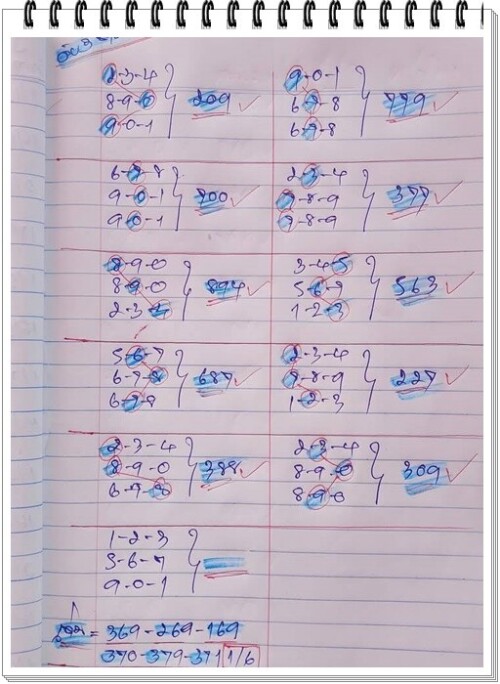 2-3-4
8-9-0
9-0-1
209
9-0-1
6-7-8
6-7-8
779
6-7-8
9-0-1
9-0-1
700
2-3-4
7-8-9
7-8-9
377
8-9-0
8-9-0
2-3-4
894
3-4-5
5-6-7
1-2-3
563
5-6-7
6-7-8
6-7-8
687
2-3-4
7-8-9
1-2-3
227
2-3-4
8-9-0
6-7-8
388
2-3-4
8-9-0
8-9-0
309
1-2-3
5-6-7
9-0-1
= 369-269-169
370-379-371 1/6